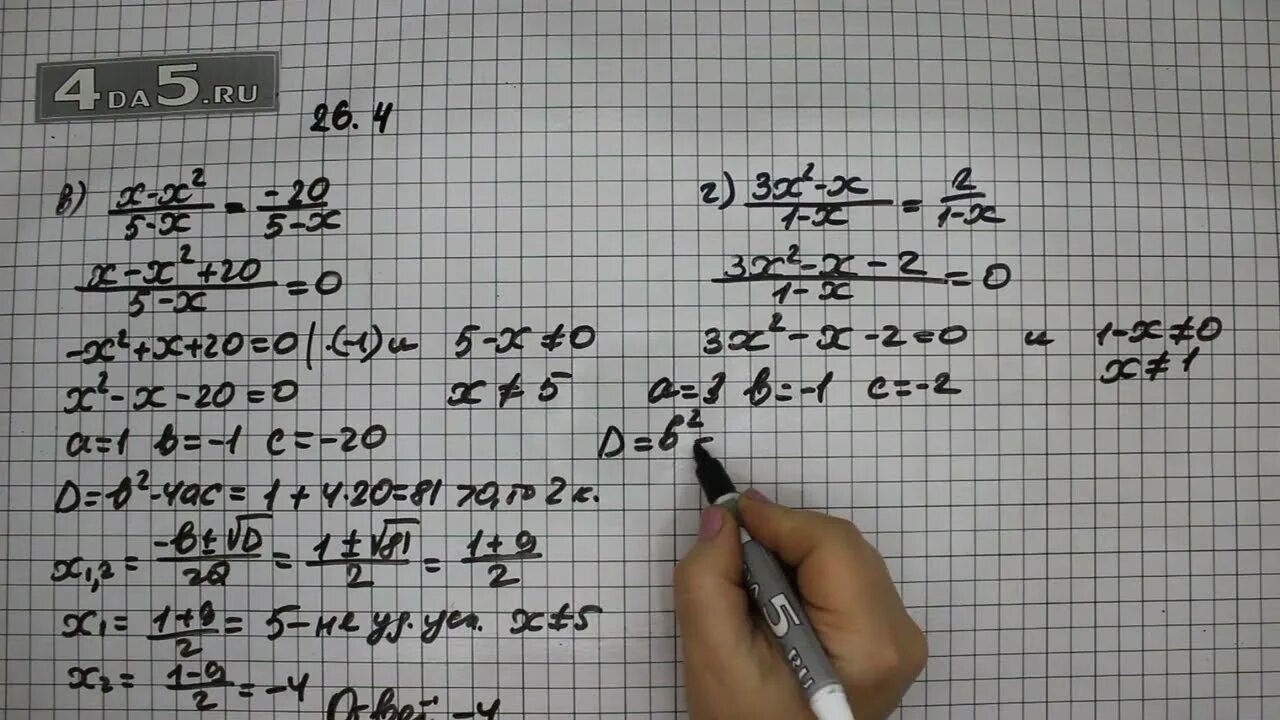 4DA5.RU
26.4
в) (x-x²)/(5-x) = (-20)/(5-x)
(x-x²+20)/(5-x) = 0
-x²+x+20=0 | ·(-1) и 5-x≠0
x²-x-20=0 x≠5
a=1 в=-1 c=-20
D=в²-4ac=1+4·20=81>0, то 2 к.
x₁,₂ = (-в±√D)/(2a) = (1±√81)/2 = (1+9)/2
x₁ = (1+9)/2 = 5 - не уд. усл. x≠5
x₂ = (1-9)/2 = -4
Ответ: -4
г) (3x²-x)/(1-x) = 2/(1-x)
(3x²-x-2)/(1-x) = 0
3x²-x-2=0 и 1-x≠0
x≠1
a=3 в=-1 c=-2
D=в²-
DA 5 RU